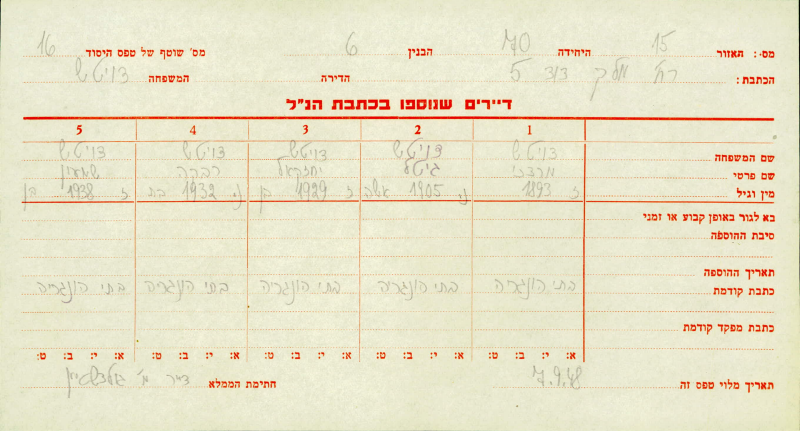 מס.: האזור 15 היחידה 70 הבנין 6 מס׳ שוטף של טפס היסוד 16
הכתבת: רח׳ מלך דוד 5 הדירה המשפחה דויטש
דיירים שנוספו בכתבת הנ"ל
1 2 3 4 5
שם המשפחה דויטש דויטש דויטש דויטש דויטש
שם פרטי מרדכי גיטל יחזקאל רבקה שמעון
מין וגיל ז 1893 נ 1905 אשה ז 1929 בן נ 1932 בת ז 1938 בן
בא לגור באופן קבוע או זמני
סיבת ההוספה
תאריך ההוספה
כתבת קודמת בתי הונגריה בתי הונגריה בתי הונגריה בתי הונגריה בתי הונגריה
כתבת מפקד קודמת
א: י: ב: ט: א: י: ב: ט: א: י: ב: ט: א: י: ב: ט: א: י: ב: ט:
תאריך מלוי טפס זה 7.9.48 חתימת הממלא